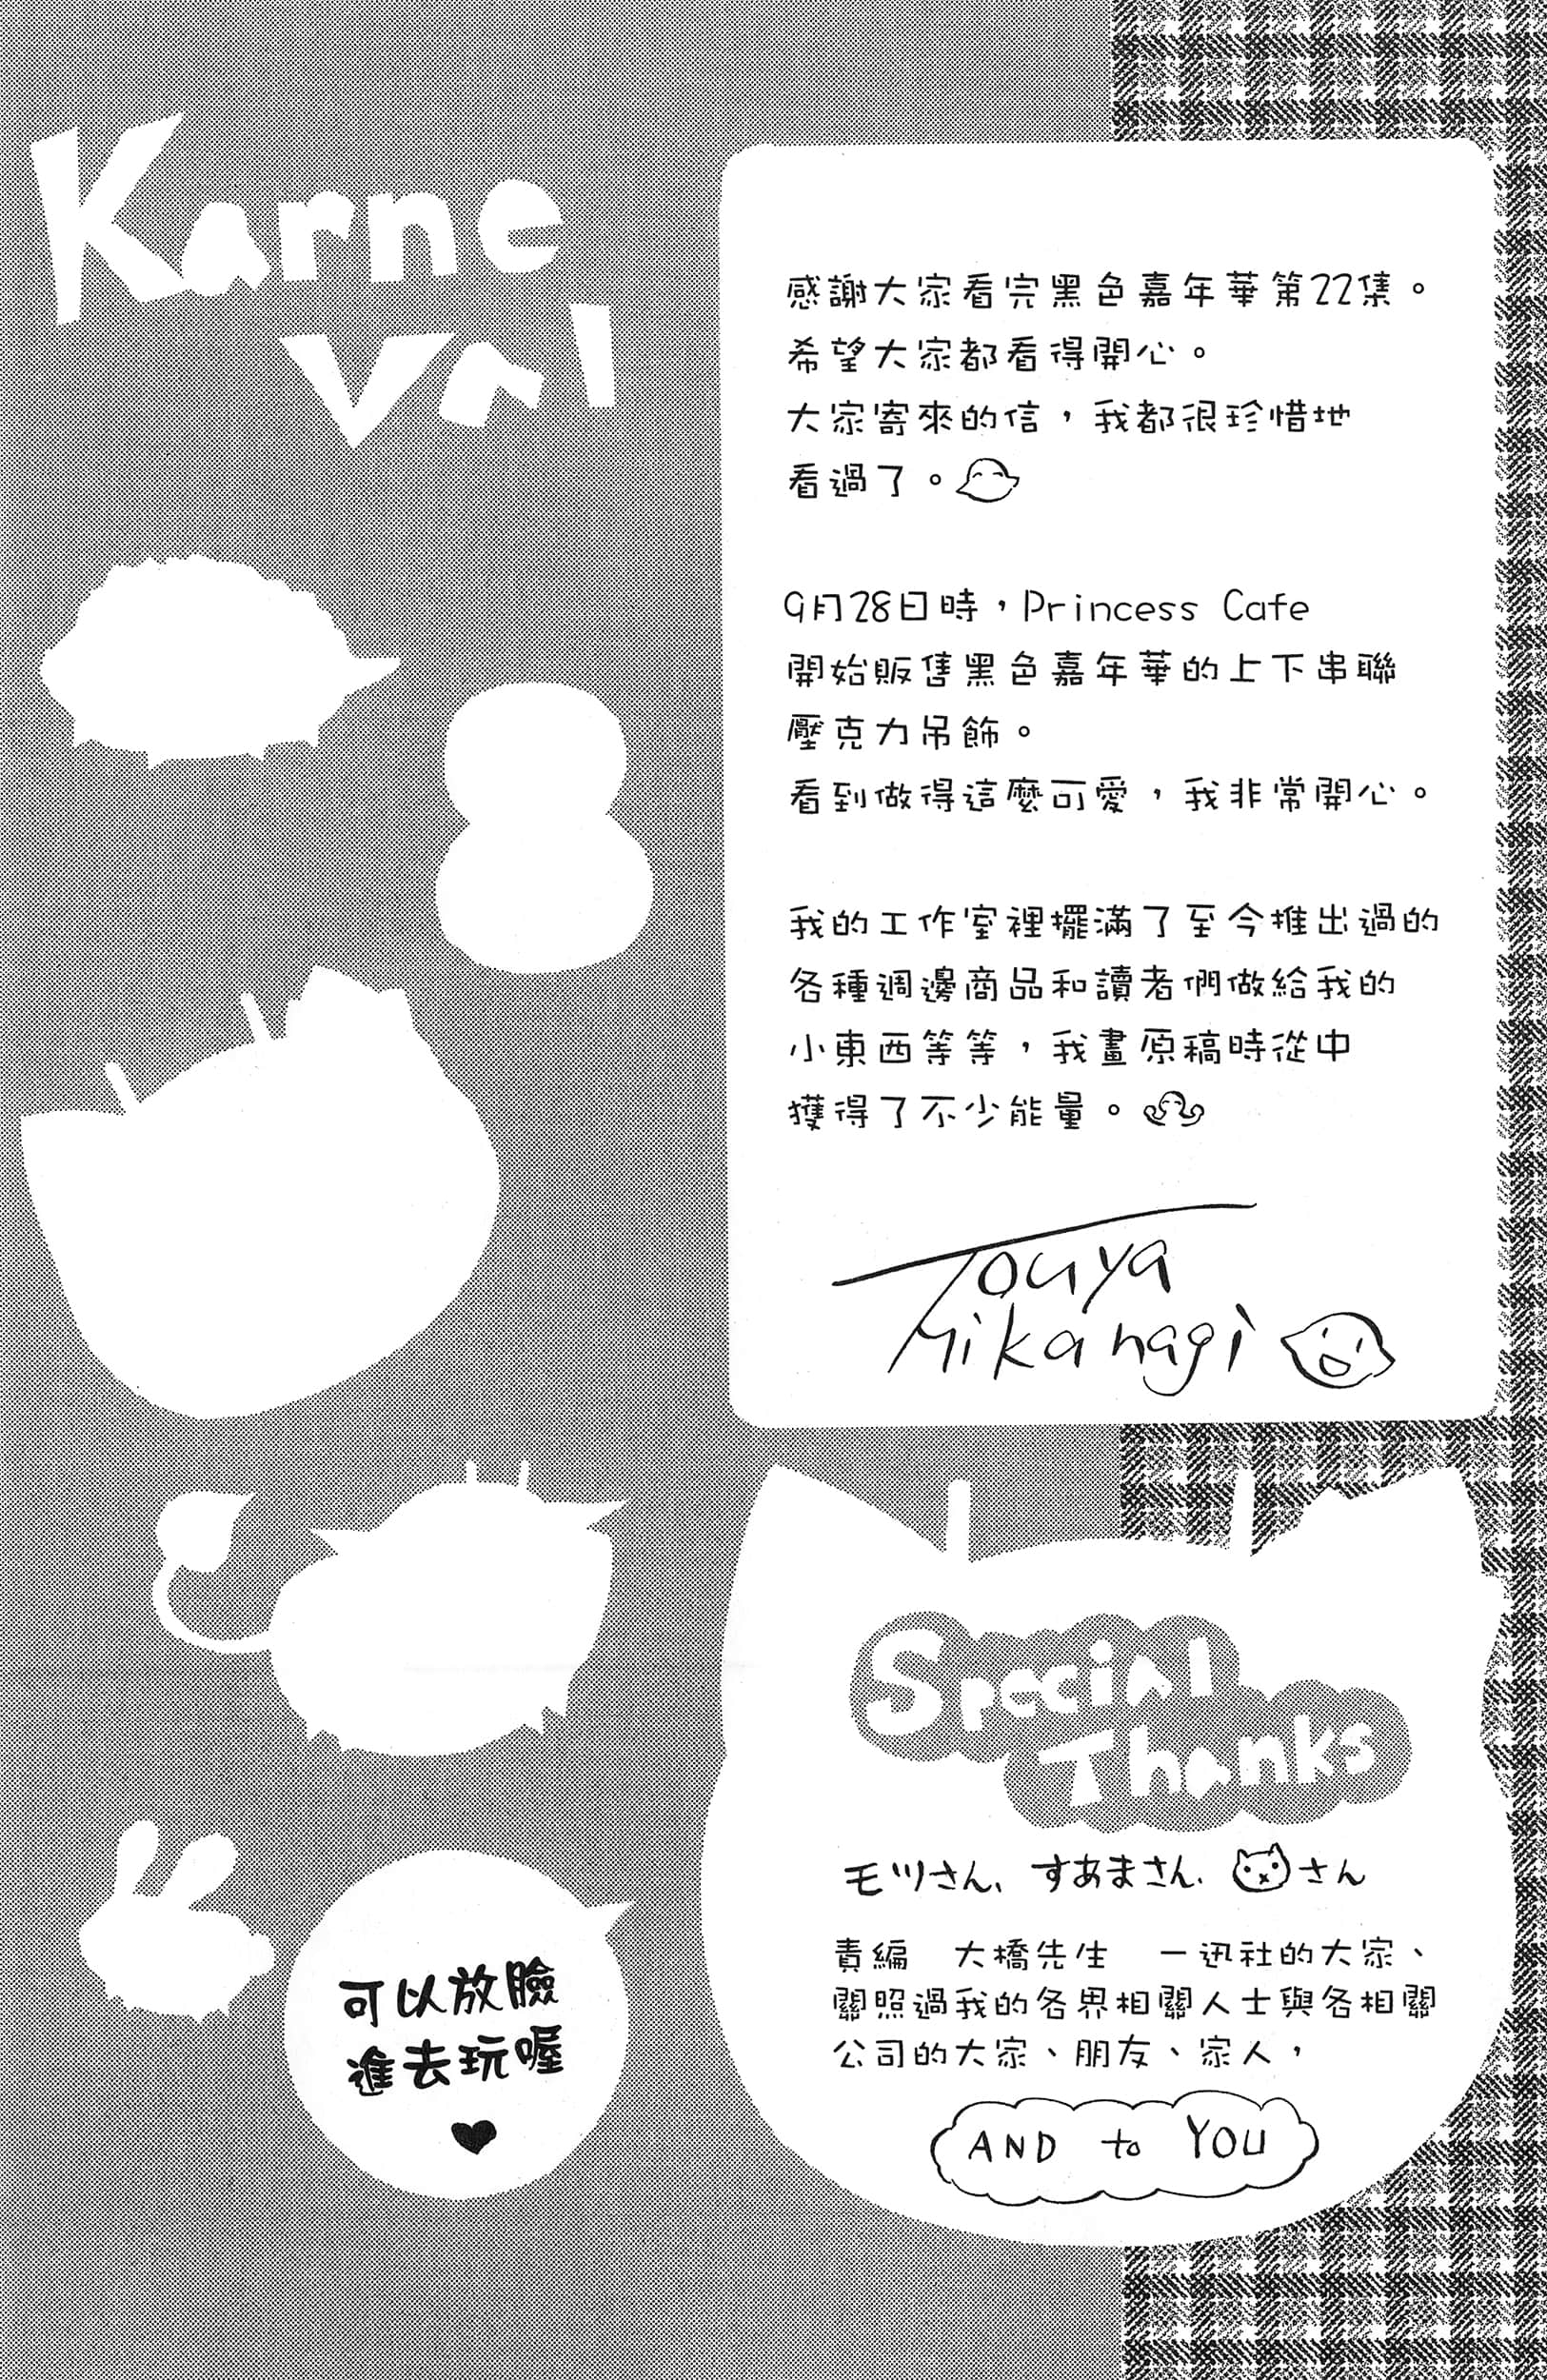 Karne
Val
感謝大家看完黑色嘉年華第22集。
希望大家都看得開心。
大家寄來的信，我都很珍惜地
看過了。
9月28日時，Princess Cafe
開始販售黑色嘉年華的上下串聯
壓克力吊飾。
看到做得這麼可愛，我非常開心。
我的工作室裡擺滿了至今推出過的
各種週邊商品和讀者們做給我的
小東西等等，我畫原稿時從中
獲得了不少能量。
Touya
Mikanagi
Special
Thanks
モツさん、すあまさん、さん
責編　大橋先生　一迅社的大家、
關照過我的各界相關人士與各相關
公司的大家、朋友、家人，
AND to YOU
可以放臉
進去玩喔